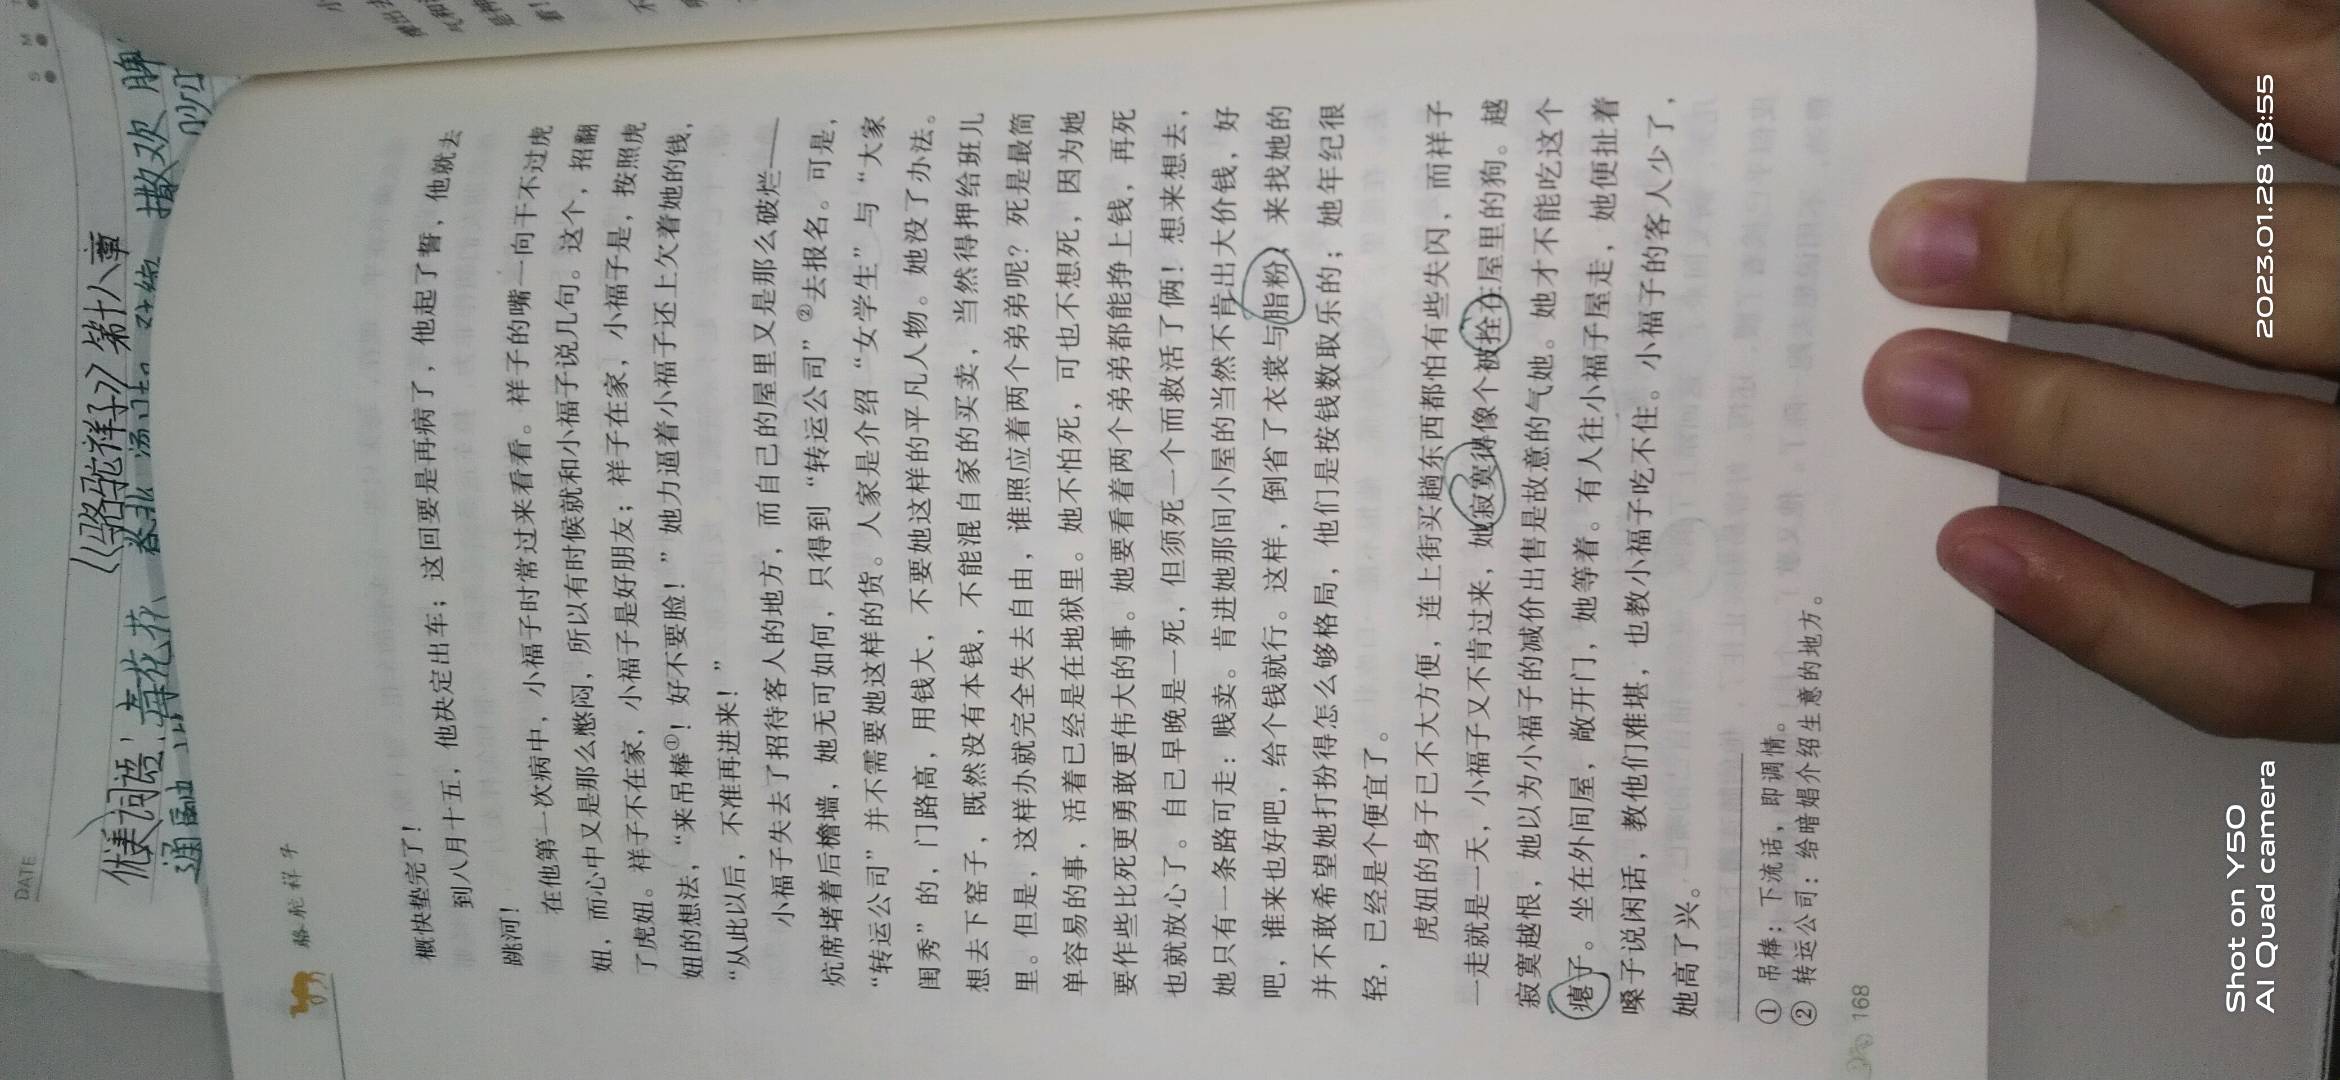 DATE
S
M
《骆驼祥子》第十八章
优美词语:
撒欢
骆驼祥子
概快垫完了!
到八月十五,他决定出车;这回要是再病了,他起了誓,他就去
跳河!
在他第一次病中,小福子时常过来看看。祥子的嘴一向干不过虎
妞,而心中又是那么憋闷,所以有时候就和小福子说几句。这个,招翻
了虎妞。祥子不在家,小福子是好朋友;祥子在家,小福子是,按照虎
妞的想法,“来吊棒①!好不要脸!”她力逼着小福子还上欠着她的钱,
“从此以后,不准再进来!”
小福子失去了招待客人的地方,而自己的屋里又是那么破烂——
炕席堵着后檐墙,她无可如何,只得到“转运公司”②去报名。可是,
“转运公司”并不需要她这样的货。人家是介绍“女学生”与“大家
闺秀”的,门路高,用钱大,不要她这样的平凡人物。她没了办法。
想去下窑子,既然没有本钱,不能混自家的买卖,当然得押给班儿
里。但是,这样办就完全失去自由,谁照应着两个弟弟呢?死是最简
单容易的事,活着已经是在地狱里。她不怕死,可也不想死,因为她
要作些比死更勇敢更伟大的事。她要看着两个弟弟都能挣上钱,再死
也就放心了。自己早晚是一死,但须死一个而救活了俩!想来想去,
她只有一条路可走:贱卖。肯进她那间小屋的当然不肯出大价钱,好
吧,谁来也好吧,给个钱就行。这样,倒省了衣裳与脂粉;来找她的
并不敢希望她打扮得怎么够格局,他们是按钱数取乐的;她年纪很
轻,已经是个便宜了。
虎妞的身子已不大方便,连上街买趟东西都怕有些失闪,而祥子
一走就是一天,小福子又不肯过来,她寂寞得像个被拴在屋里的狗。越
寂寞越恨,她以为小福子的减价出售是故意的气她。她才不能吃这个
瘪子。坐在外间屋,敞开门,她等着。有人往小福子屋走,她便扯着
嗓子说闲话,教他们难堪,也教小福子吃不住。小福子的客人少了,
她高了兴。
① 吊棒:下流话,即调情。
② 转运公司:给暗娼介绍生意的地方。
168
Shot on Y50
AI Quad camera
2023.01.28 18:55